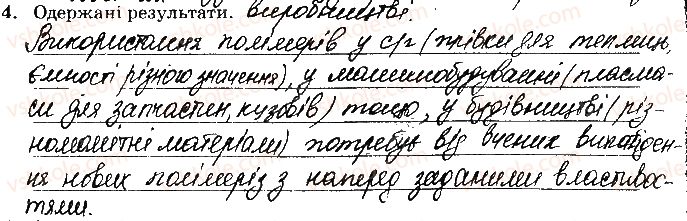 4. Одержані результати. виробництві.
Використання полімерів у с/г (плівки для теплиц,
ємності різного значення), у машинобудуванні (пластма-
си для запчастен, кузовів) тощо, у будівництві (різ-
номанітні матеріали) потребує від вчених винайден-
ня нових полімерів з наперед заданими властивос-
тями.